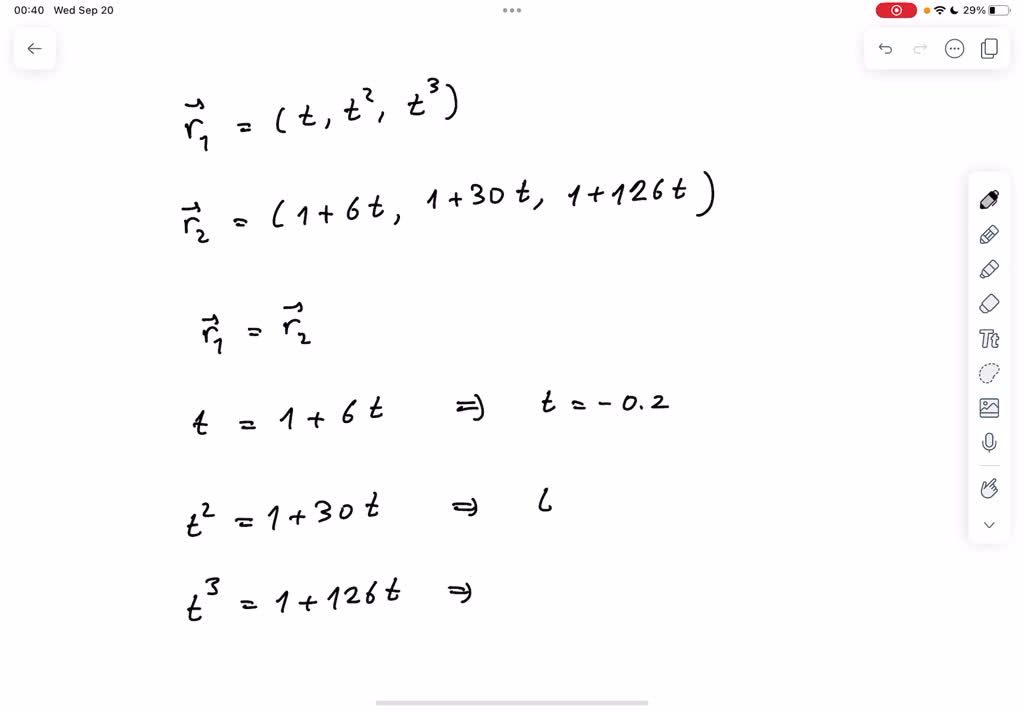 00:40 Wed Sep 20
29%
r⃗₁ = (t, t², t³)
r⃗₂ = (1+6t, 1+30t, 1+126t)
r⃗₁ = r⃗₂
t = 1+6t ⇒ t = -0.2
t² = 1+30t ⇒ (
t³ = 1+126t ⇒
Tt